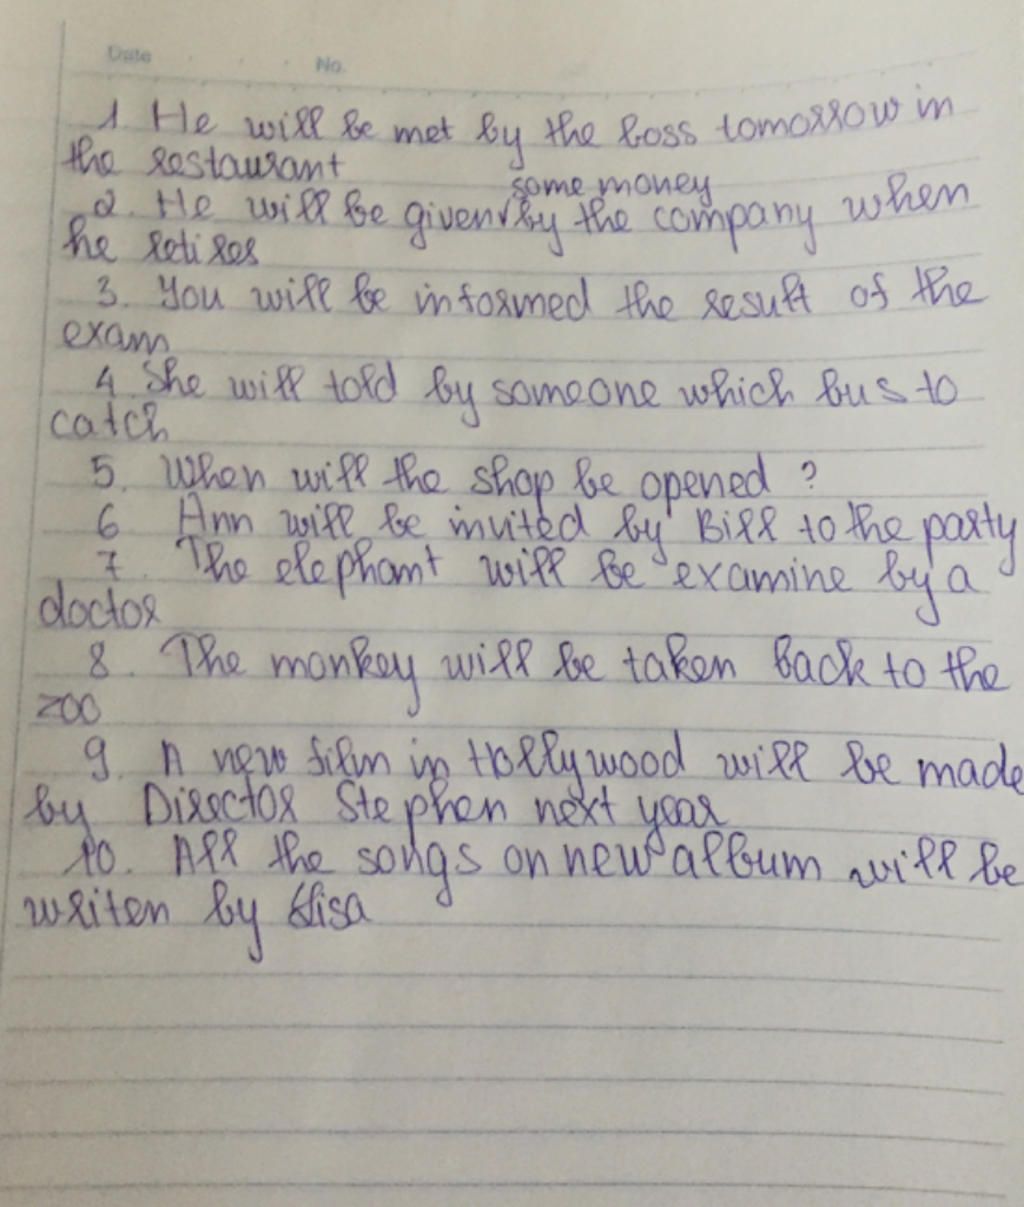 Date No.
1. He will be met by the boss tomorrow in
the restaurant
some money
2. He will be given by the company when
he retires
3. You will be informed the result of the
exam
4. She will told by someone which bus to
catch
5. When will the shop be opened ?
6 Ann will be invited by Bill to the party
7. The elephant will be examine by a
doctor
8. The monkey will be taken back to the
zoo
9. A new film in Hollywood will be made
by Director Stephen next year
10. All the songs on new album will be
writen by Elisa